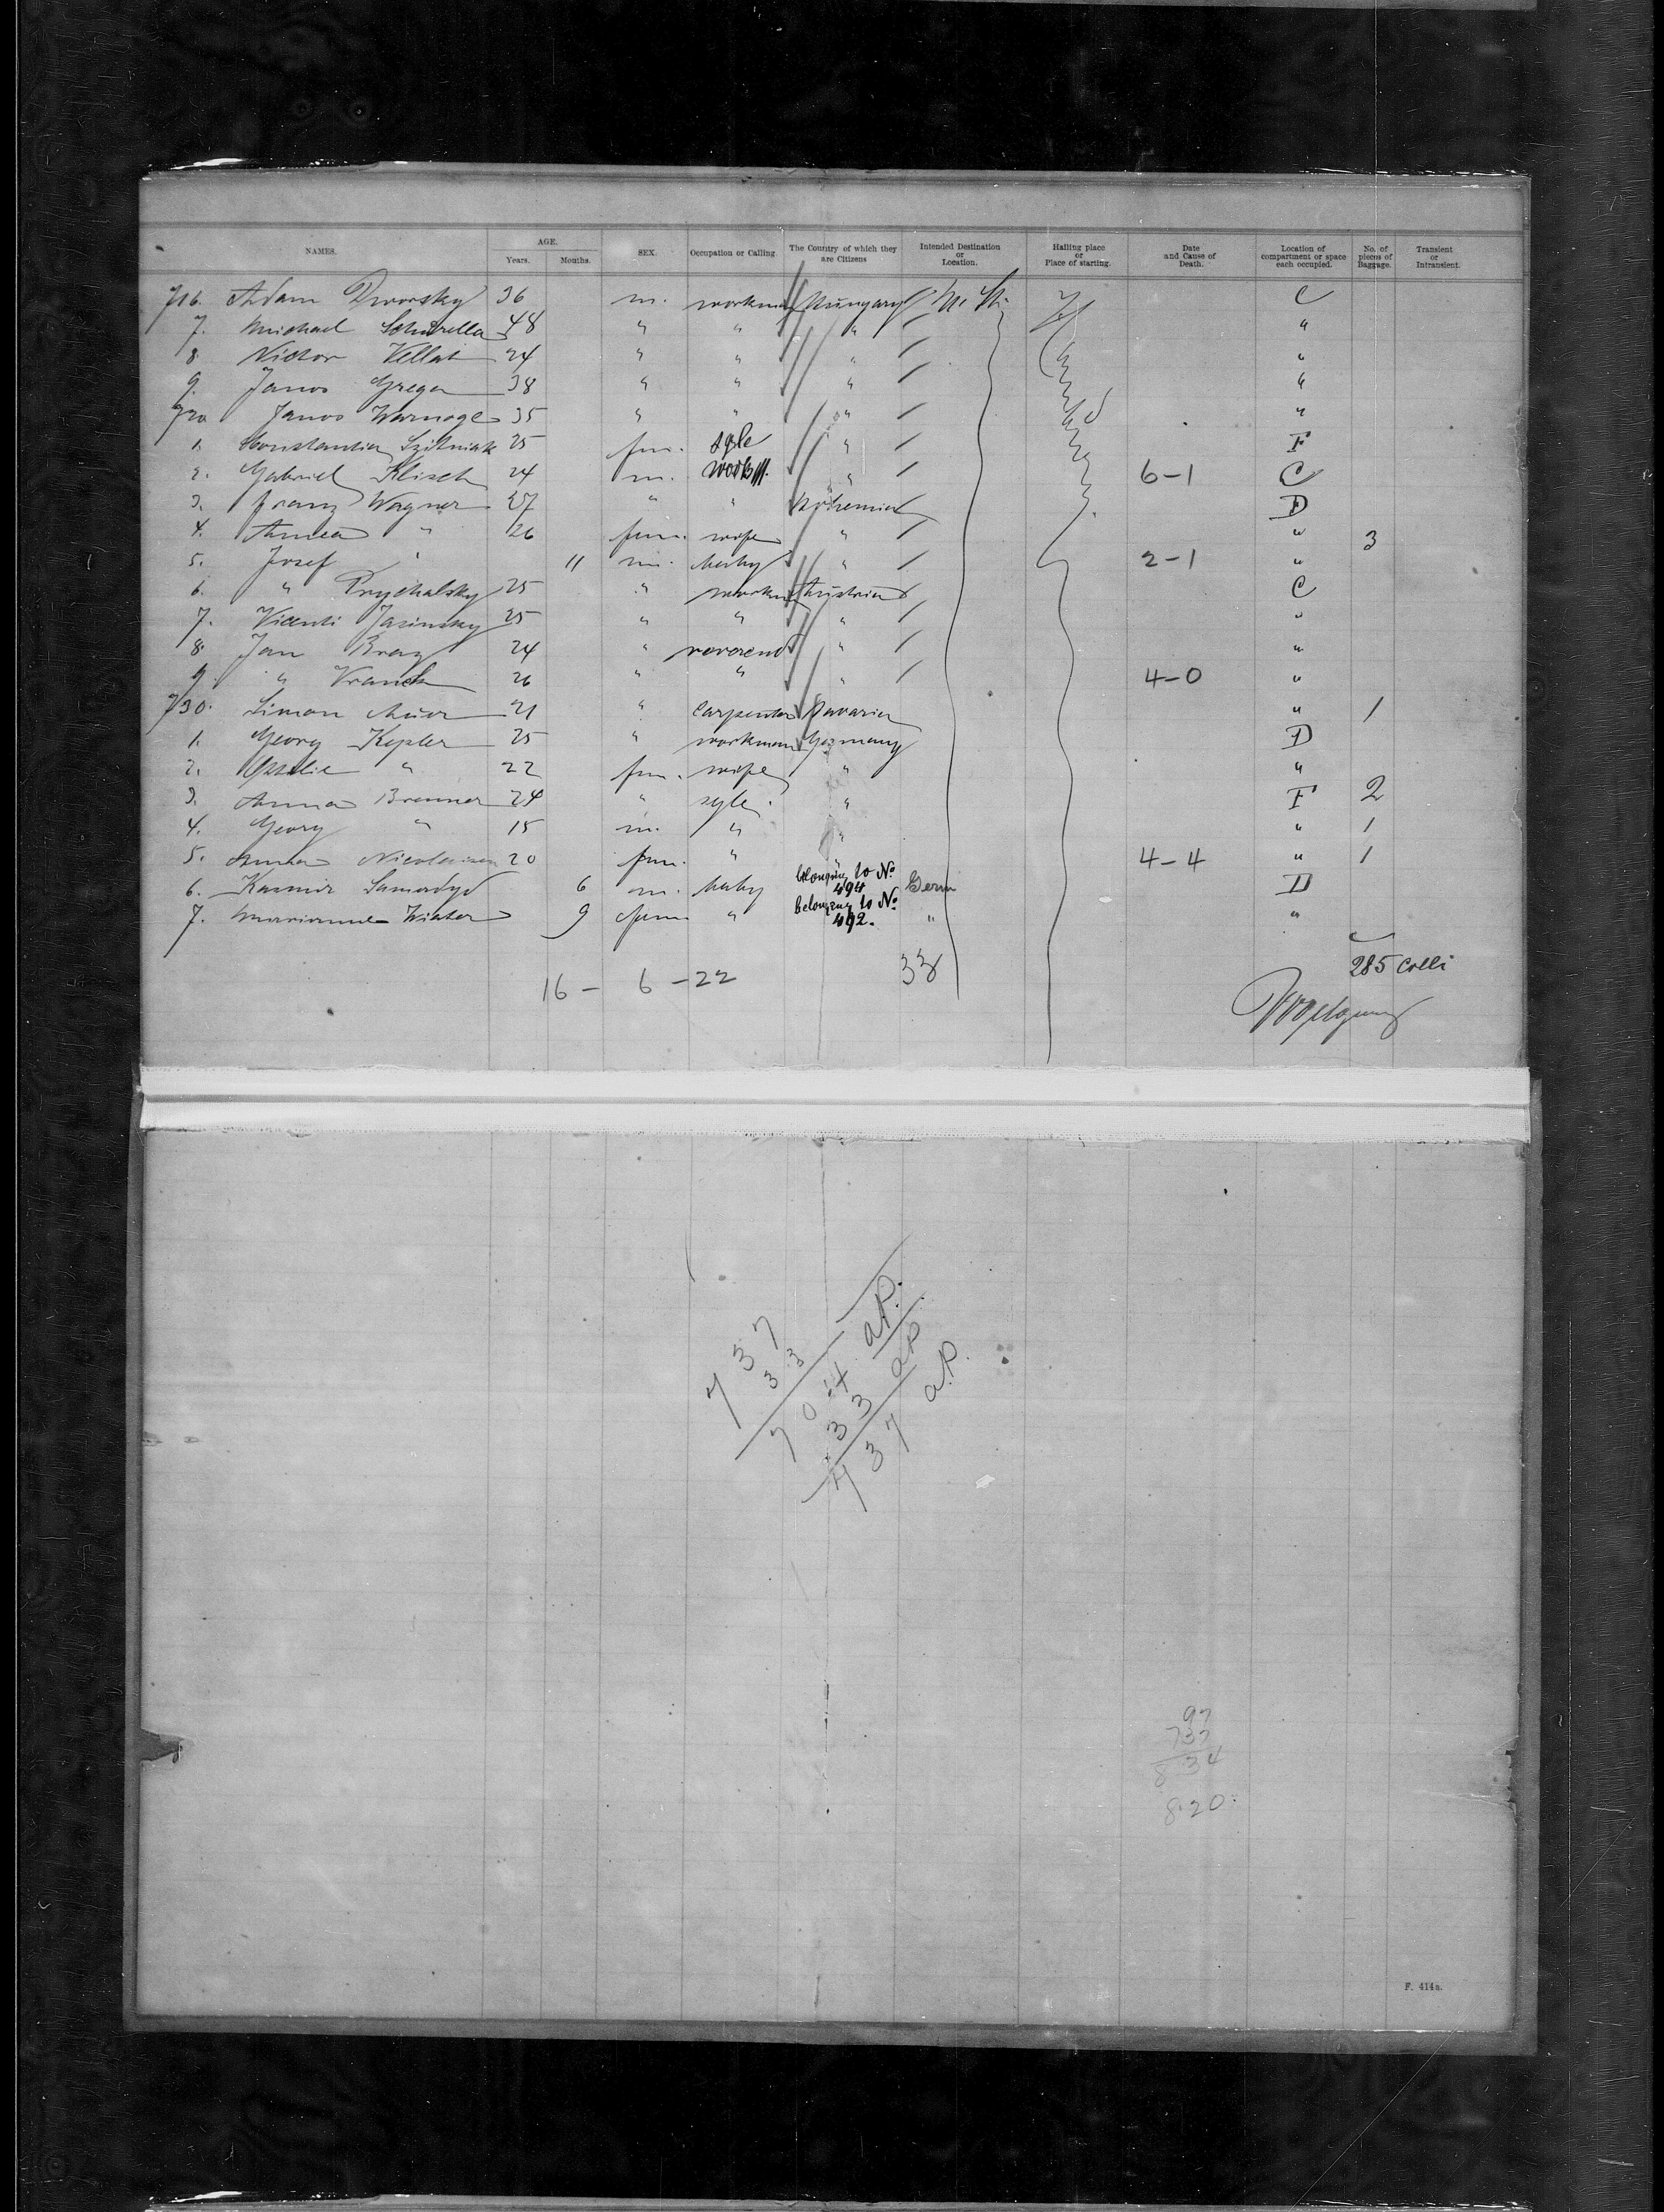 NAMES. AGE. Years. Months. SEX. Occupation or Calling. The Country of which they are Citizens Intended Destination or Location. Hailing place or Place of starting. Date and Cause of Death. Location of compartment or space each occupied. No. of pieces of Baggage. Transient or Intransient.
716. Adam Dworsky 36 m. workman Hungary C
7. Michael Schurella 48 " " " "
8. Victor Vellat 24 " " " "
9. Janos Grega 38 " " " "
720 Janos Warnoge 35 " " " "
1. Constantia Szitniak 25 fm. sgle " F
2. Gabriel Klisch 24 m. " 6-1 C
3. Franz Wagner 27 " " Bohemia D
4. " 26 fm. wife " " 3
5. Josef " 11 m. baby " 2-1 "
6. " Prychalsky 25 " workm Austria C
7. Vicenti Jasinsky 25 " " " "
8. Jan 24 " reverend " "
9. " 26 " " " 4-0 "
730. Simon 21 " carpenter Bavaria " 1
1. Georg Kepler 25 " workman Germany D
2. " 22 fm. wife " "
3. Anna Brenner 24 " sgle. " F 2
4. Georg " 15 m. " " " 1
5. Anna 20 fm. " " 4-4 " 1
6. Kasmir 6 m. baby belonging to No 494 Germ D
7. Marianne Winter 9 fm " belonging to No 492. " "
285 Colli
16 - 6 - 22 33
737
33
704 a.P.
33 a.P.
737 a.P.
97
737
834
820
F. 414a.